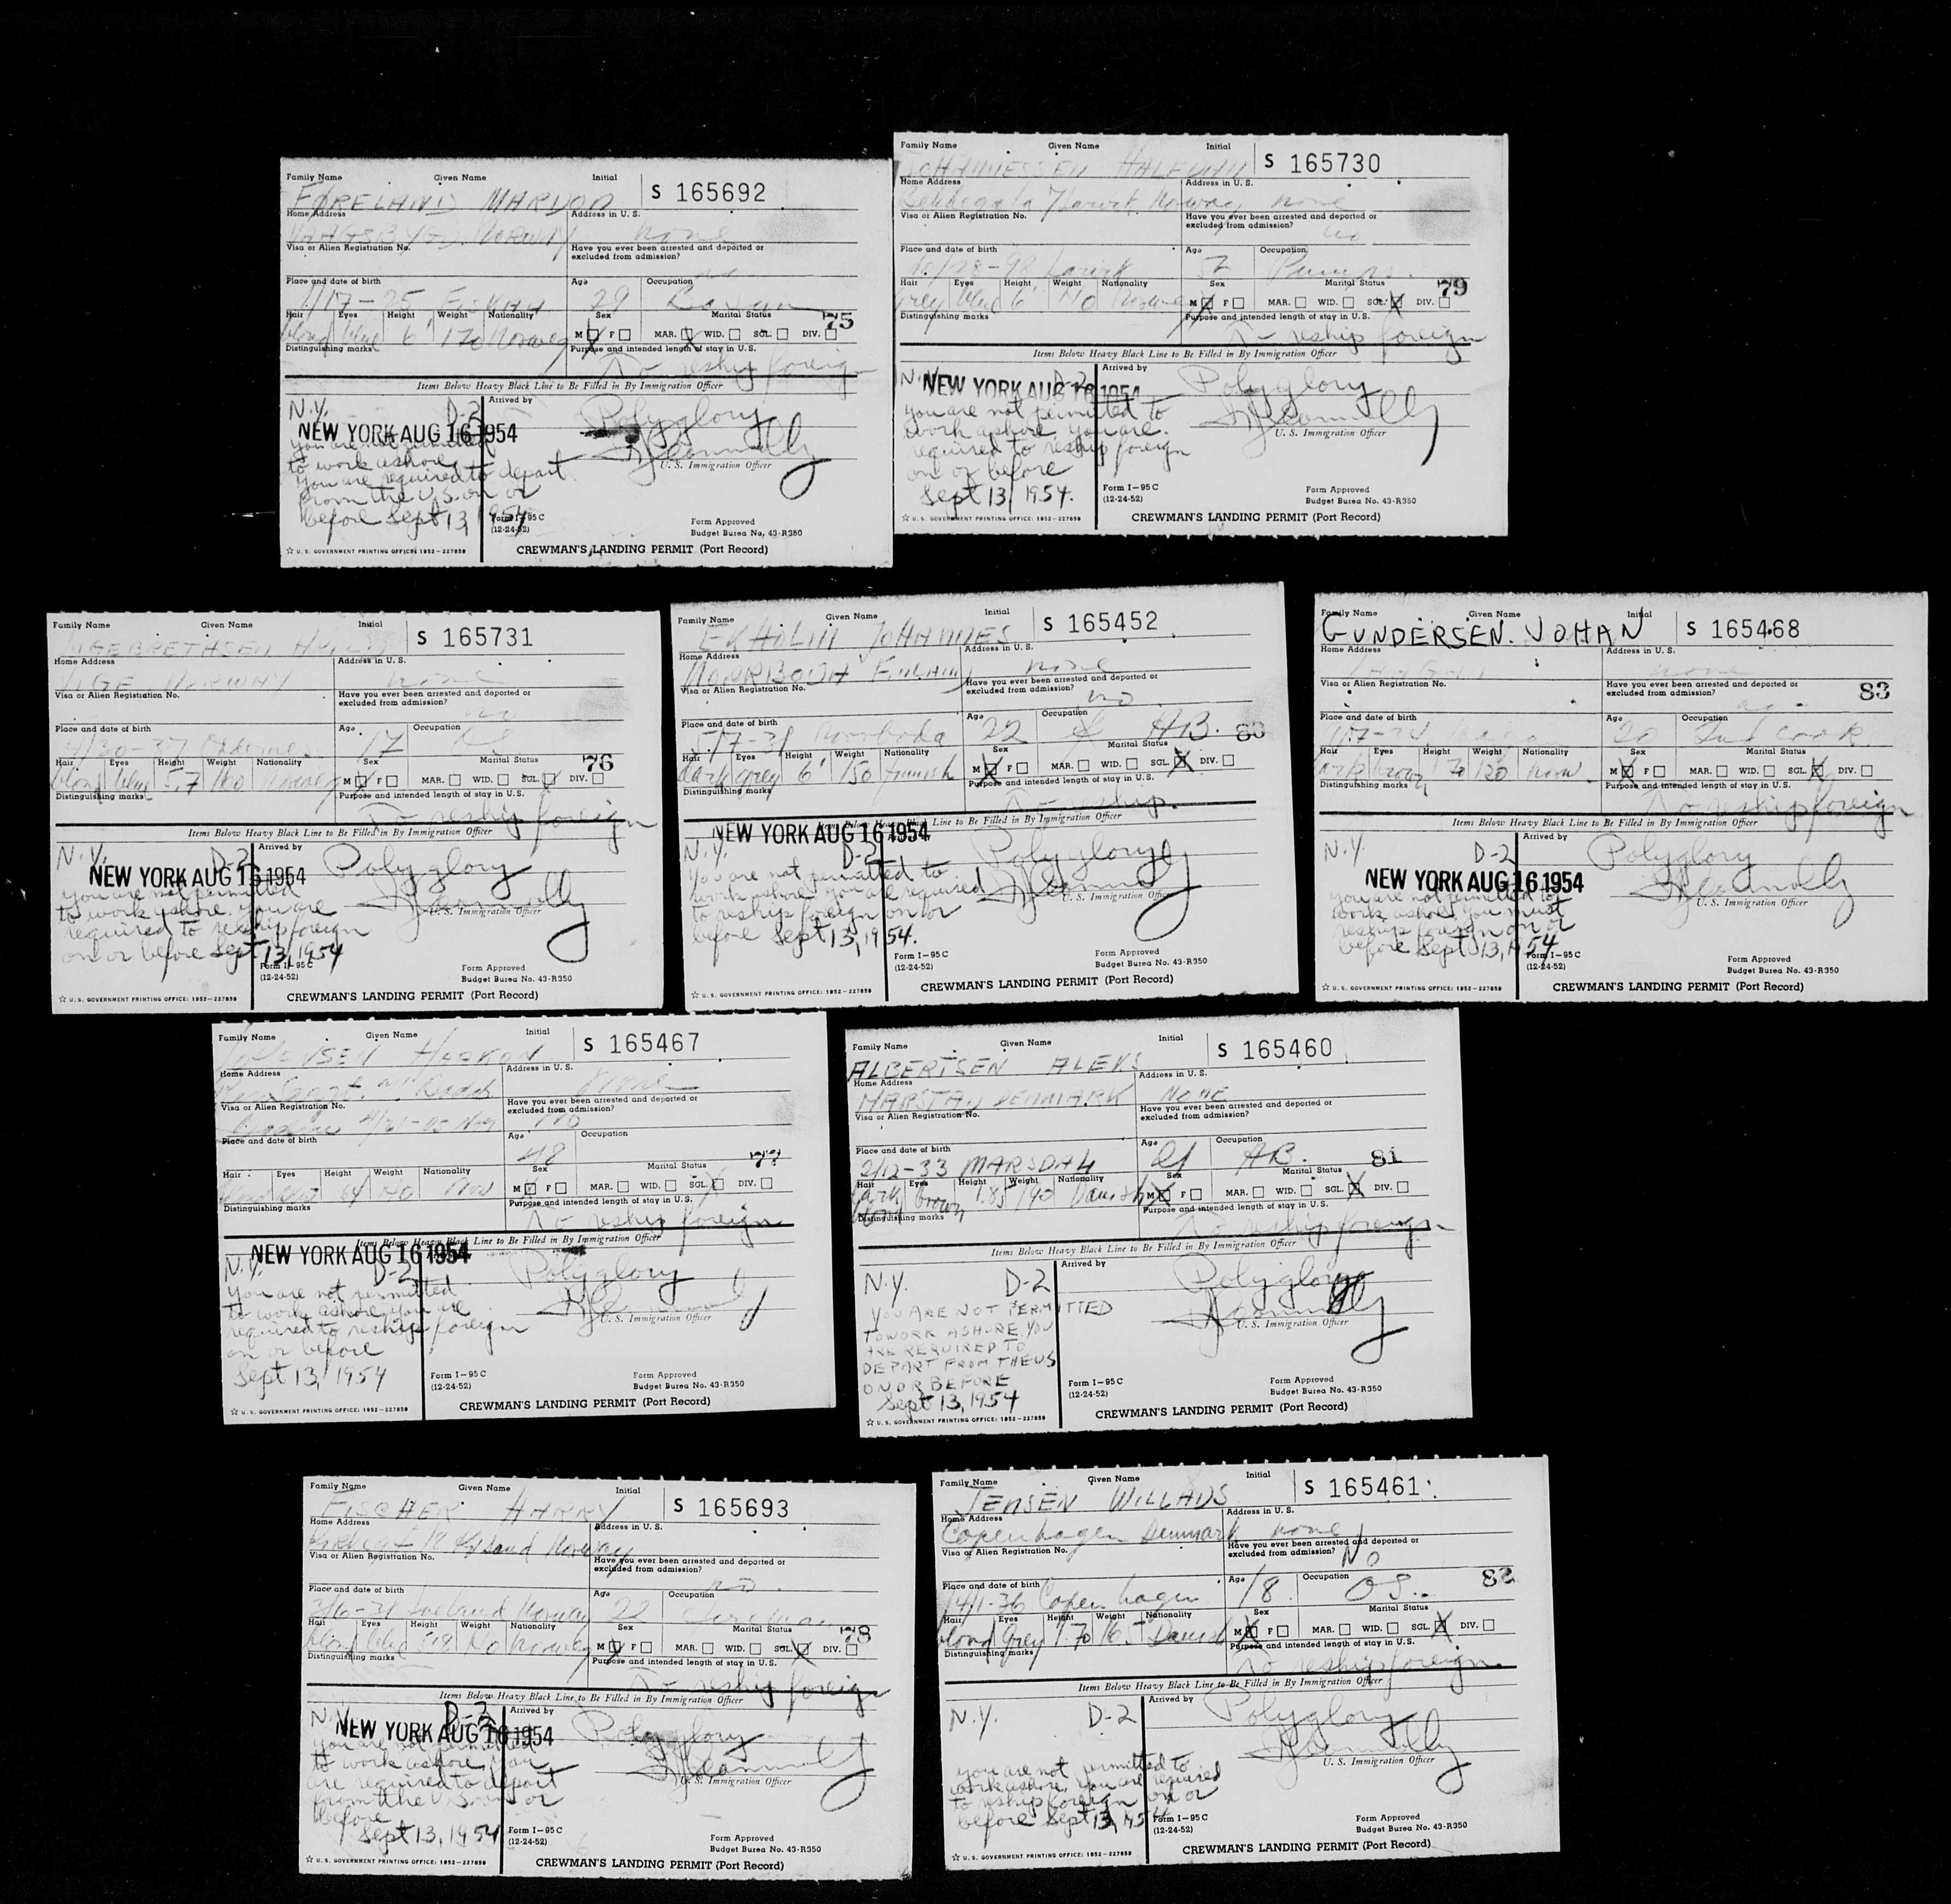 Family Name Given Name Initial S 165692
MARDON
Home Address Address in U. S.
NORWAY none
Visa or Alien Registration No. Have you ever been arrested and deported or excluded from admission?
no
Place and date of birth Age Occupation
1/17-25 29
Hair Eyes Height Weight Nationality Sex Marital Status 75
blond blue 6' 170 Norweg M F MAR. WID. SGL. DIV.
Distinguishing marks Purpose and intended length of stay in U.S.
To reship foreign
Items Below Heavy Black Line to Be Filled in By Immigration Officer
N.Y. D-2 Arrived by Polyglory
NEW YORK AUG 16 1954
you are not permitted
to work ashore
you are required to depart U. S. Immigration Officer
from the U.S. on or
before Sept 13, 1954
Form I-95 C
(12-24-52)
Form Approved
Budget Burea No. 43-R350
☆ U. S. GOVERNMENT PRINTING OFFICE: 1952-227859
CREWMAN'S LANDING PERMIT (Port Record)
Family Name Given Name Initial S 165730
JOHANNESSEN HALFDAN
Home Address Address in U. S.
Norway none
Visa or Alien Registration No. Have you ever been arrested and deported or excluded from admission?
no
Place and date of birth Age Occupation
10/28-98 Larvik
Hair Eyes Height Weight Nationality Sex Marital Status 79
grey blue 6' Norweg M F MAR. WID. SGL. DIV.
Distinguishing marks Purpose and intended length of stay in U.S.
To reship foreign
Items Below Heavy Black Line to Be Filled in By Immigration Officer
N.Y. D-2 Arrived by Polyglory
NEW YORK AUG 16 1954
you are not permitted to
work ashore you are U. S. Immigration Officer
required to reship foreign
on or before
Sept 13, 1954.
Form I-95 C
(12-24-52)
Form Approved
Budget Burea No. 43-R350
☆ U. S. GOVERNMENT PRINTING OFFICE: 1952-227859
CREWMAN'S LANDING PERMIT (Port Record)
Family Name Given Name Initial S 165731
Home Address Address in U. S.
NORWAY none
Visa or Alien Registration No. Have you ever been arrested and deported or excluded from admission?
no
Place and date of birth Age Occupation
4/30-37 17
Hair Eyes Height Weight Nationality Sex Marital Status 76
blond blue 5,7 160 Norweg M F MAR. WID. SGL. DIV.
Distinguishing marks Purpose and intended length of stay in U.S.
To reship foreign
Items Below Heavy Black Line to Be Filled in By Immigration Officer
N.Y. D-2 Arrived by Polyglory
NEW YORK AUG 16 1954
you are not permitted
to work ashore. you are U. S. Immigration Officer
required to reship foreign
on or before Sept 13, 1954
Form I-95 C
(12-24-52)
Form Approved
Budget Burea No. 43-R350
☆ U. S. GOVERNMENT PRINTING OFFICE: 1952-227859
CREWMAN'S LANDING PERMIT (Port Record)
Family Name Given Name Initial S 165452
EKHOLM JOHANNES
Home Address Address in U. S.
none
Visa or Alien Registration No. Have you ever been arrested and deported or excluded from admission?
no
Place and date of birth Age Occupation
22 AB. 80
Hair Eyes Height Weight Nationality Sex Marital Status
dark grey 6' 150 finnish M F MAR. WID. SGL. DIV.
Distinguishing marks Purpose and intended length of stay in U.S.
To reship.
Items Below Heavy Black Line to Be Filled in By Immigration Officer
NEW YORK AUG 16 1954
N.Y. D-2 Polyglory
You are not permitted to
work ashore you are required U. S. Immigration Officer
to reship foreign on or
before Sept 13, 1954.
Form I-95 C
(12-24-52)
Form Approved
Budget Burea No. 43-R350
☆ U. S. GOVERNMENT PRINTING OFFICE: 1952-227859
CREWMAN'S LANDING PERMIT (Port Record)
Family Name Given Name Initial S 165468
GUNDERSEN. JOHAN
Home Address Address in U. S.
none
Visa or Alien Registration No. Have you ever been arrested and deported or excluded from admission? 83
Place and date of birth Age Occupation
20 2nd cook
Hair Eyes Height Weight Nationality Sex Marital Status
dark brown 120 Norw. M F MAR. WID. SGL. DIV.
Distinguishing marks Purpose and intended length of stay in U.S.
To reship foreign
Items Below Heavy Black Line to Be Filled in By Immigration Officer
N.Y. D-2 Arrived by Polyglory
NEW YORK AUG 16 1954
you are not permitted to
work ashore you must U. S. Immigration Officer
reship foreign on or
before Sept 13, 1954
Form I-95 C
(12-24-52)
Form Approved
Budget Burea No. 43-R350
☆ U. S. GOVERNMENT PRINTING OFFICE: 1952-227859
CREWMAN'S LANDING PERMIT (Port Record)
Family Name Given Name Initial S 165467
HAAKON
Home Address Address in U. S.
None
Visa or Alien Registration No. Have you ever been arrested and deported or excluded from admission?
No
Place and date of birth Age Occupation
48
Hair Eyes Height Weight Nationality Sex Marital Status 77
Nor M F MAR. WID. SGL. DIV.
Distinguishing marks Purpose and intended length of stay in U.S.
To reship foreign
Items Below Heavy Black Line to Be Filled in By Immigration Officer
NEW YORK AUG 16 1954
N.Y. D-2 Polyglory
you are not permitted
to work ashore you are U. S. Immigration Officer
required to reship foreign
on or before
Sept 13, 1954
Form I-95 C
(12-24-52)
Form Approved
Budget Burea No. 43-R350
☆ U. S. GOVERNMENT PRINTING OFFICE: 1952-227859
CREWMAN'S LANDING PERMIT (Port Record)
Family Name Given Name Initial S 165460
ALBERTSEN ALEKS
Home Address Address in U. S.
MARSTAL DENMARK NONE
Visa or Alien Registration No. Have you ever been arrested and deported or excluded from admission?
Place and date of birth Age Occupation
2/12-33 21 AB. 81
Hair Eyes Height Weight Nationality Sex Marital Status
dark blond brown 1.85 190 Danish M F MAR. WID. SGL. DIV.
Distinguishing marks Purpose and intended length of stay in U.S.
To reship foreign
Items Below Heavy Black Line to Be Filled in By Immigration Officer
N.Y. D-2 Arrived by Polyglory
YOU ARE NOT PERMITTED
TO WORK ASHORE. YOU U. S. Immigration Officer
ARE REQUIRED TO
DEPART FROM THE US
ON OR BEFORE
Sept 13, 1954
Form I-95 C
(12-24-52)
Form Approved
Budget Burea No. 43-R350
☆ U. S. GOVERNMENT PRINTING OFFICE: 1952-227859
CREWMAN'S LANDING PERMIT (Port Record)
Family Name Given Name Initial S 165693
FISCHER HARRY
Home Address Address in U. S.
Norway
Visa or Alien Registration No. Have you ever been arrested and deported or excluded from admission?
no.
Place and date of birth Age Occupation
Norway 22
Hair Eyes Height Weight Nationality Sex Marital Status 78
blond blue Norweg M F MAR. WID. SGL. DIV.
Distinguishing marks Purpose and intended length of stay in U.S.
To reship foreign
Items Below Heavy Black Line to Be Filled in By Immigration Officer
N.Y. D-2 Arrived by Polyglory
NEW YORK AUG 16 1954
you are not permitted
to work ashore. you
are required to depart U. S. Immigration Officer
from the U.S. on or
before
Sept 13, 1954
Form I-95 C
(12-24-52)
Form Approved
Budget Burea No. 43-R350
☆ U. S. GOVERNMENT PRINTING OFFICE: 1952-227859
CREWMAN'S LANDING PERMIT (Port Record)
Family Name Given Name Initial S 165461
JENSEN WILLADS
Home Address Address in U. S.
Copenhagen Denmark none
Visa or Alien Registration No. Have you ever been arrested and deported or excluded from admission?
No
Place and date of birth Age Occupation
Copenhagen 18 OS. 82
Hair Eyes Height Weight Nationality Sex Marital Status
blond grey 1.70 165 Danish M F MAR. WID. SGL. DIV.
Distinguishing marks Purpose and intended length of stay in U.S.
To reship foreign.
Items Below Heavy Black Line to Be Filled in By Immigration Officer
N.Y. D-2 Arrived by Polyglory
U. S. Immigration Officer
you are not permitted to
work ashore, you are required
to reship foreign on or
before Sept 13, 1954
Form I-95 C
(12-24-52)
Form Approved
Budget Burea No. 43-R350
☆ U. S. GOVERNMENT PRINTING OFFICE: 1952-227859
CREWMAN'S LANDING PERMIT (Port Record)